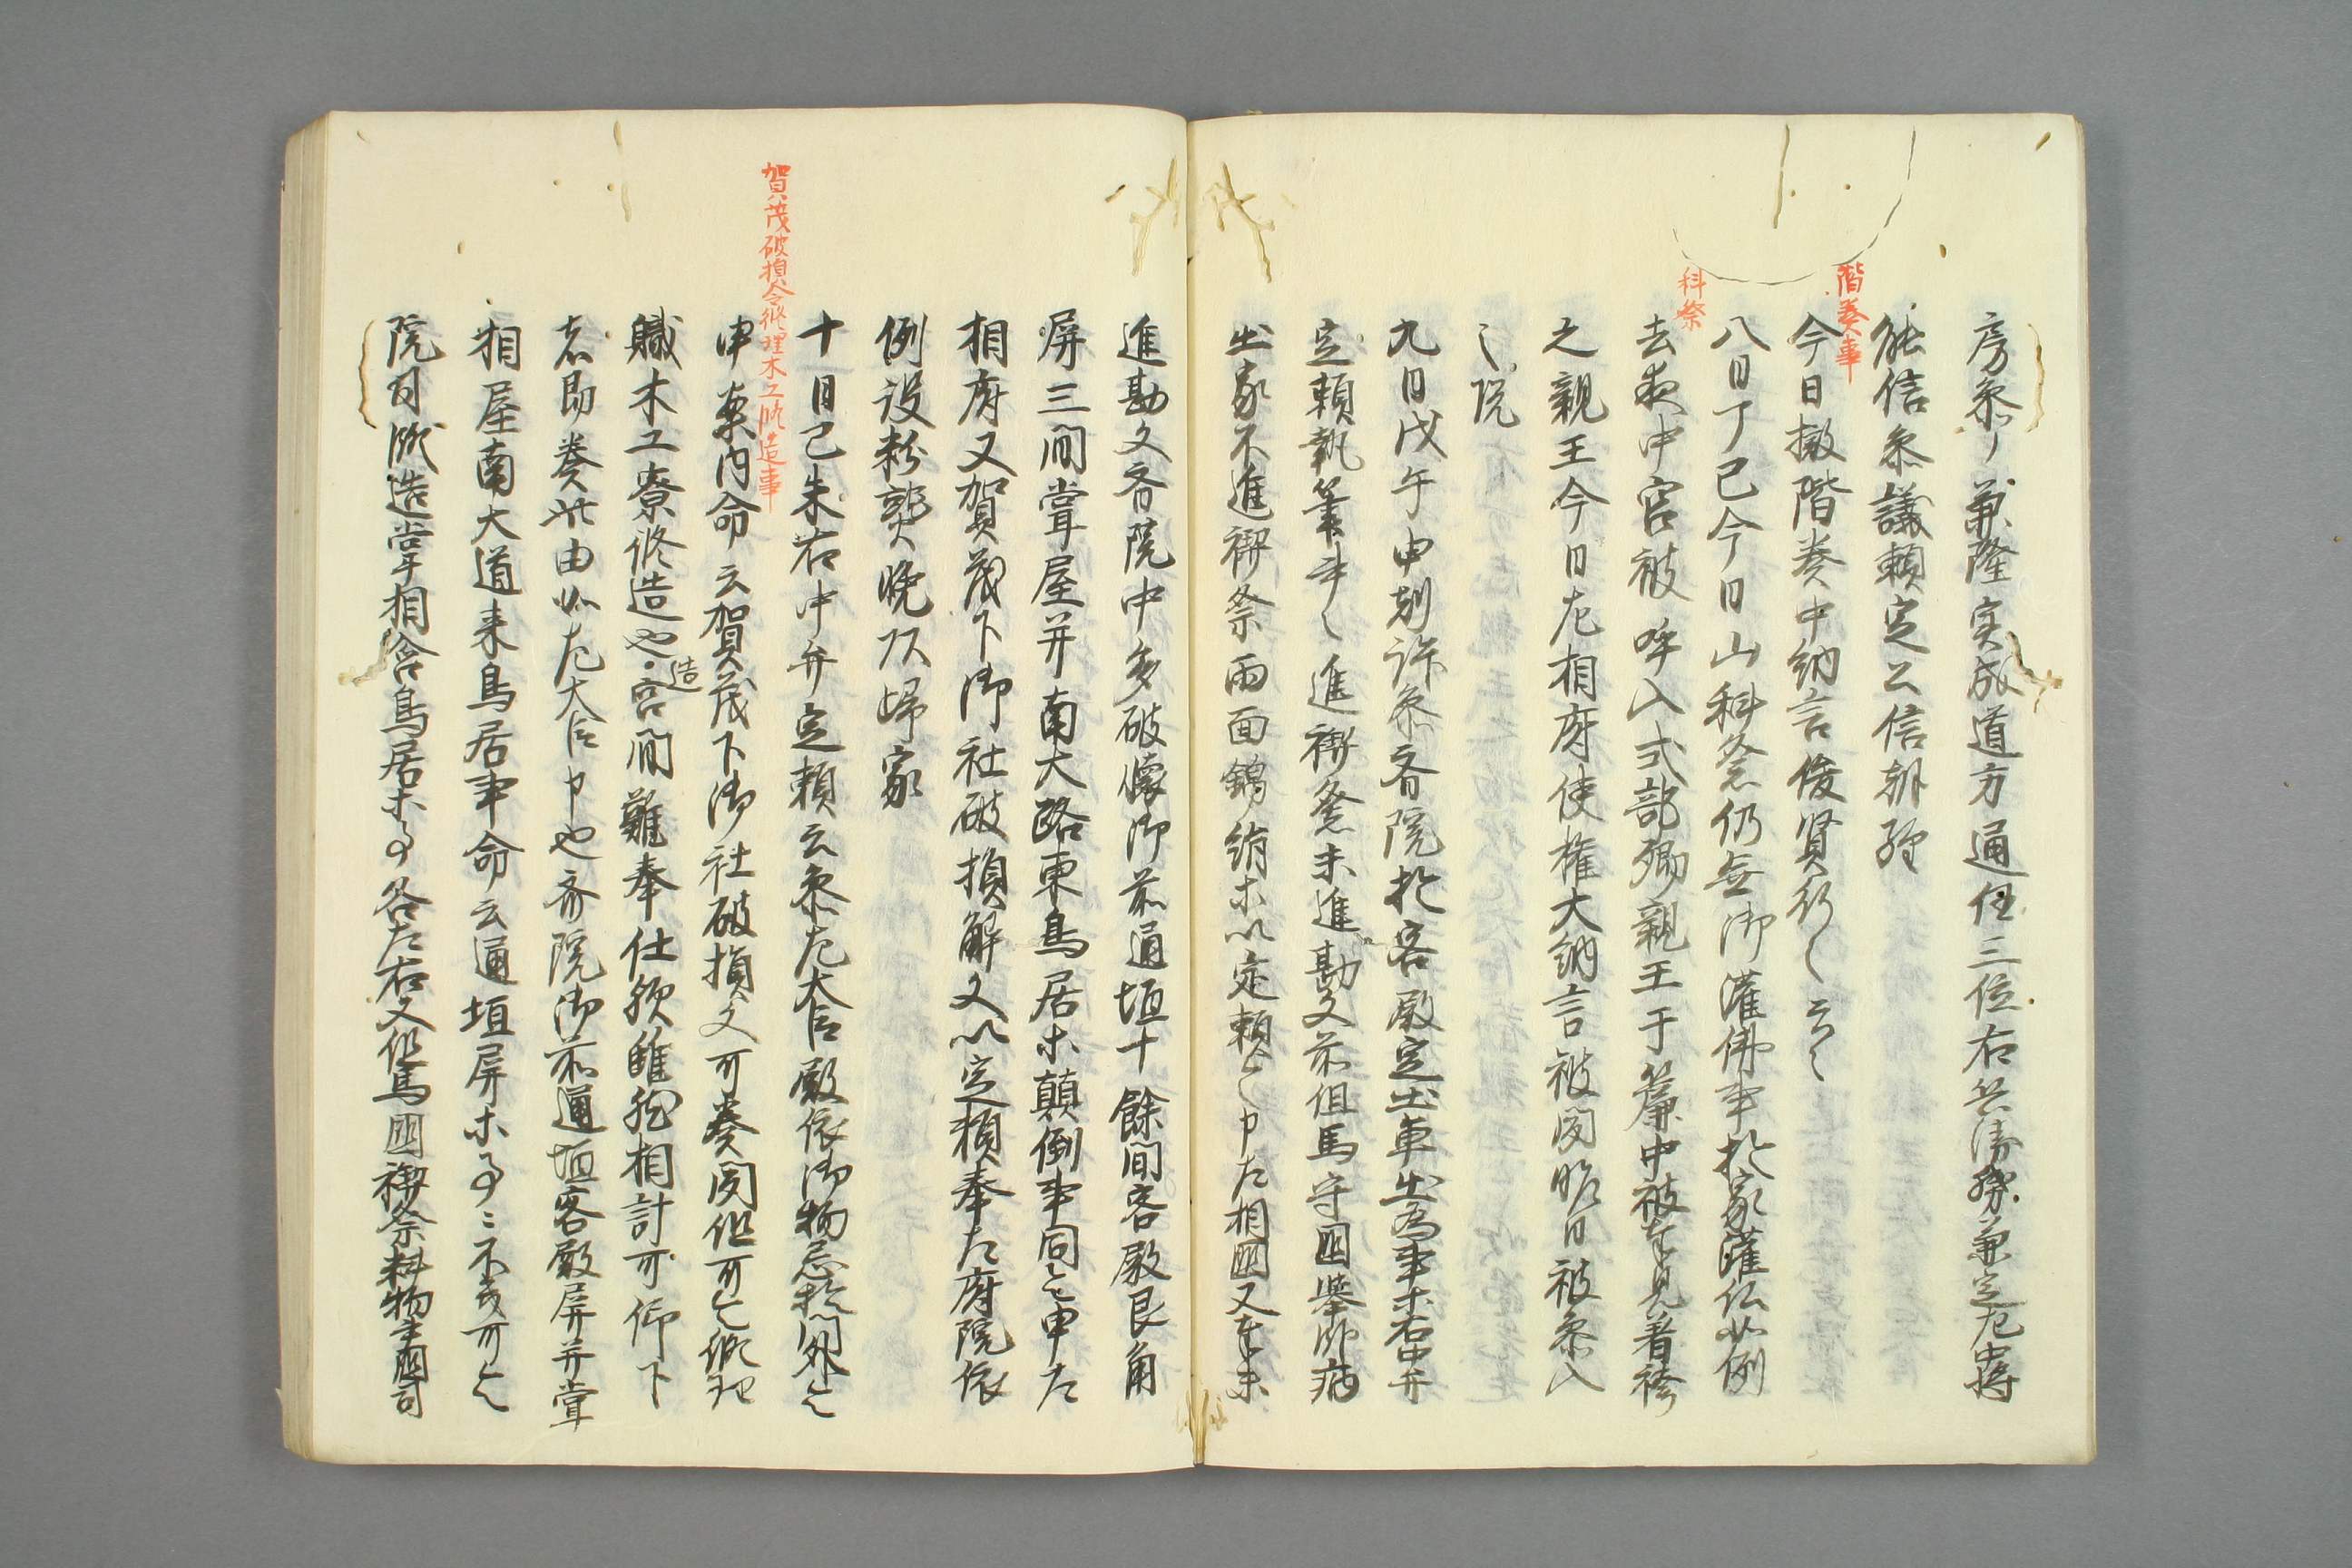 房参議兼隆実成道方通任三位右兵衛督兼定左中将
能信参議頼定公信朝経
階奏事
今日擬階奏中納言俊賢行之云々
科祭
八日丁巳今日山科祭仍無御灌佛事於家灌仏如例
去夜中宮被呼入式部卿親王于簾中被奉見著袴
之親王今日左相府使権大納言被聞昨日被参入
之院
九日戊午申刻許参斎院於客殿定出車出馬事等右中弁
定頼執筆事々進禊祭未進勘文前但馬守国挙臥病
出家不進禊祭両面錦絹等以定頼令申左相国又奉未
進勘文斎院中多破壊御前通垣十餘間客殿艮角
屏三間掌屋并南大路東鳥居等顛倒事同令申左
相府又賀茂下御社破損解文以定頼奉左府院依
例設粉熟晩頃帰家
賀茂破損令修理木工修造事
十日己未右中弁定頼云参左大臣殿依御物忌於門外令
申案内命云賀茂下御社破損文可奏聞但可令修理
職木工寮修造也造宮間難奉仕欤雖然相計可仰下
者即奏此由如左大臣申也斎院御前通垣客殿屏并掌
相屋南大道東鳥居事命云通垣屏等事々不幾可令
院司修造掌相舎鳥居等事各左右又但馬国禊祭料物主国司